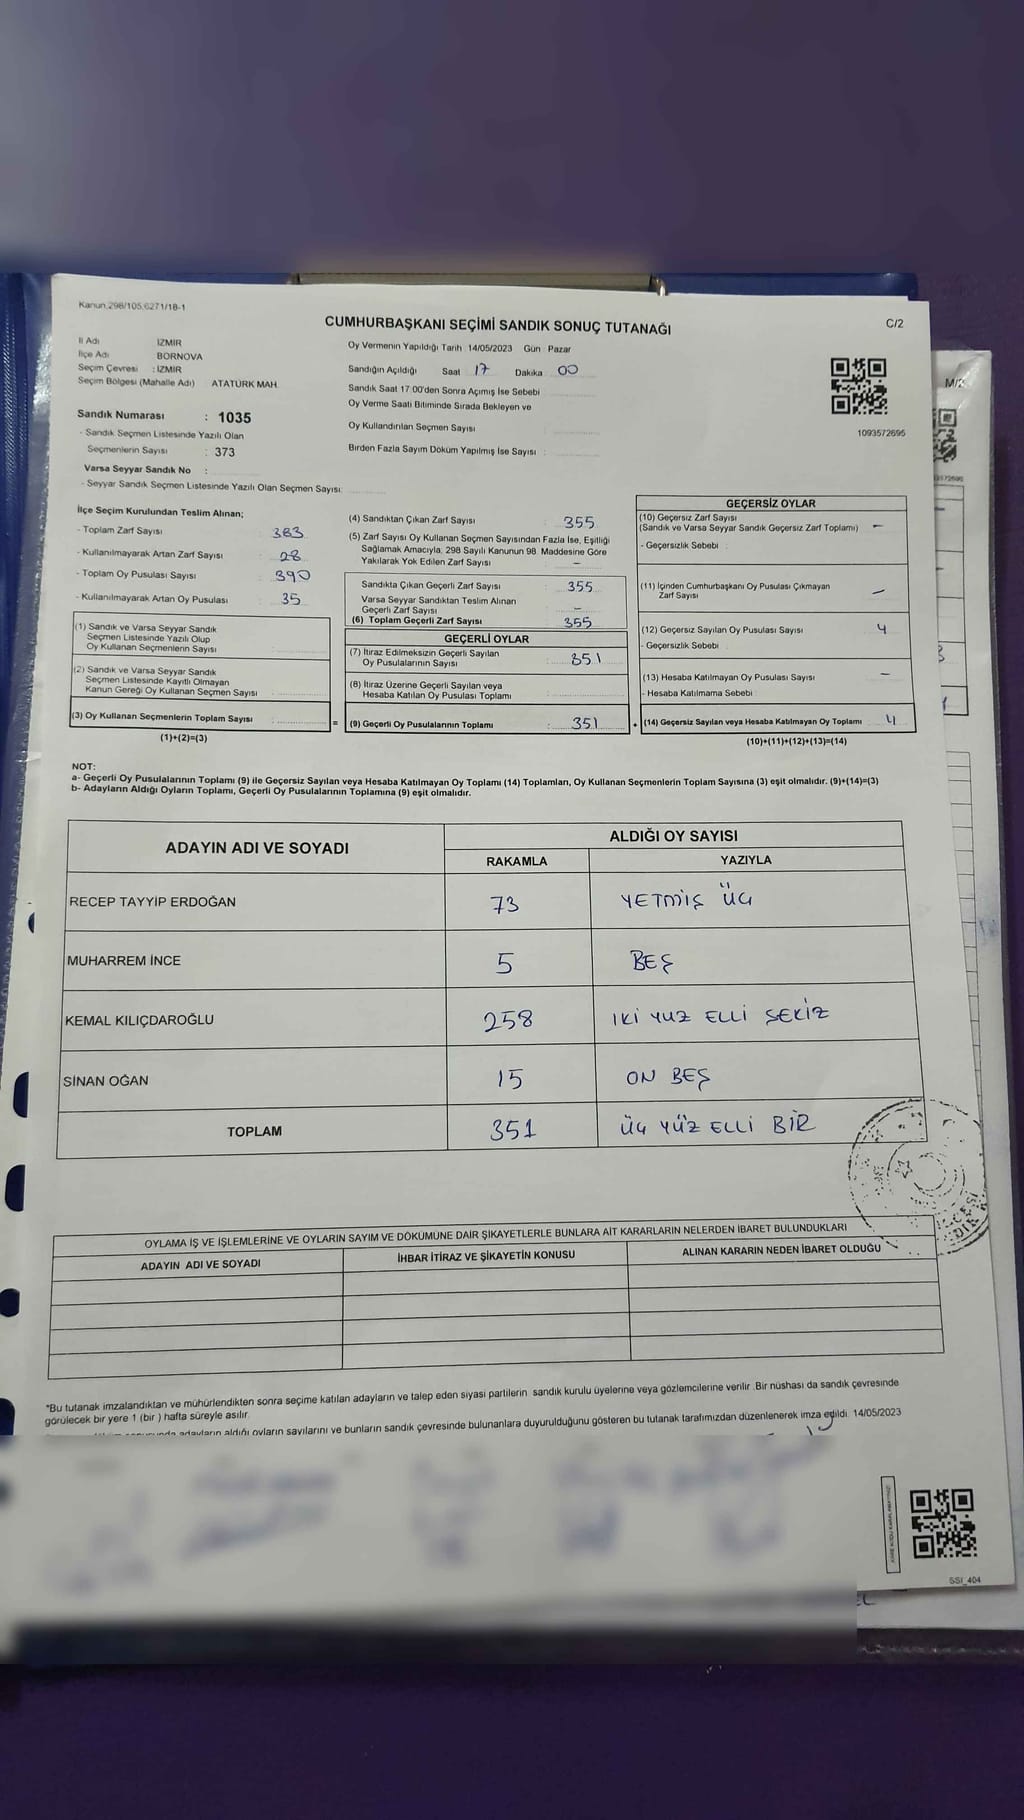 Kanun.298/105.6271/18-1
CUMHURBAŞKANI SEÇİMİ SANDIK SONUÇ TUTANAĞI
C/2
İl Adı İZMİR
İlçe Adı BORNOVA
Seçim Çevresi : İZMİR
Seçim Bölgesi (Mahalle Adı) ATATÜRK MAH.
Oy Vermenin Yapıldığı Tarih 14/05/2023 Gün : Pazar
Sandığın Açıldığı Saat 17 Dakika 00
Sandık Saat 17:00'den Sonra Açımış İse Sebebi
Oy Verme Saati Bitiminde Sırada Bekleyen ve
Oy Kullandırılan Seçmen Sayısı :
Birden Fazla Sayım Döküm Yapılmış İse Sayısı :
1093572695
M/2
Sandık Numarası : 1035
- Sandık Seçmen Listesinde Yazılı Olan
Seçmenlerin Sayısı : 373
Varsa Seyyar Sandık No :
- Seyyar Sandık Seçmen Listesinde Yazılı Olan Seçmen Sayısı:
İlçe Seçim Kurulundan Teslim Alınan;
- Toplam Zarf Sayısı : 383
- Kullanılmayarak Artan Zarf Sayısı : 28
- Toplam Oy Pusulası Sayısı : 390
- Kullanılmayarak Artan Oy Pusulası : 35
(1) Sandık ve Varsa Seyyar Sandık
Seçmen Listesinde Yazılı Olup
Oy Kullanan Seçmenlerin Sayısı :
(2) Sandık ve Varsa Seyyar Sandık
Seçmen Listesinde Kayıtlı Olmayan
Kanun Gereği Oy Kullanan Seçmen Sayısı :
(3) Oy Kullanan Seçmenlerin Toplam Sayısı :
(1)+(2)=(3)
(4) Sandıktan Çıkan Zarf Sayısı : 355
(5) Zarf Sayısı Oy Kullanan Seçmen Sayısından Fazla İse, Eşitliği
Sağlamak Amacıyla, 298 Sayılı Kanunun 98. Maddesine Göre
Yakılarak Yok Edilen Zarf Sayısı : –
Sandıkta Çıkan Geçerli Zarf Sayısı : 355
Varsa Seyyar Sandıktan Teslim Alınan
Geçerli Zarf Sayısı : –
(6) Toplam Geçerli Zarf Sayısı : 355
GEÇERLİ OYLAR
(7) İtiraz Edilmeksizin Geçerli Sayılan
Oy Pusulalarının Sayısı : 351
(8) İtiraz Üzerine Geçerli Sayılan veya
Hesaba Katılan Oy Pusulası Toplamı :
= (9) Geçerli Oy Pusulalarının Toplamı : 351
GEÇERSİZ OYLAR
(10) Geçersiz Zarf Sayısı
(Sandık ve Varsa Seyyar Sandık Geçersiz Zarf Toplamı) –
- Geçersizlik Sebebi :
(11) İçinden Cumhurbaşkanı Oy Pusulası Çıkmayan
Zarf Sayısı –
(12) Geçersiz Sayılan Oy Pusulası Sayısı 4
- Geçersizlik Sebebi :
(13) Hesaba Katılmayan Oy Pusulası Sayısı –
- Hesaba Katılmama Sebebi :
+ (14) Geçersiz Sayılan veya Hesaba Katılmayan Oy Toplamı 4
(10)+(11)+(12)+(13)=(14)
NOT:
a- Geçerli Oy Pusulalarının Toplamı (9) ile Geçersiz Sayılan veya Hesaba Katılmayan Oy Toplamı (14) Toplamları, Oy Kullanan Seçmenlerin Toplam Sayısına (3) eşit olmalıdır. (9)+(14)=(3)
b- Adayların Aldığı Oyların Toplamı, Geçerli Oy Pusulalarının Toplamına (9) eşit olmalıdır.
ADAYIN ADI VE SOYADI ALDIĞI OY SAYISI
RAKAMLA YAZIYLA
RECEP TAYYİP ERDOĞAN 73 YETMİŞ ÜÇ
MUHARREM İNCE 5 BEŞ
KEMAL KILIÇDAROĞLU 258 İKİ YUZ ELLİ SEKİZ
SİNAN OĞAN 15 ON BEŞ
TOPLAM 351 ÜÇ YÜZ ELLİ BİR
OYLAMA İŞ VE İŞLEMLERİNE VE OYLARIN SAYIM VE DÖKÜMÜNE DAİR ŞİKAYETLERLE BUNLARA AİT KARARLARIN NELERDEN İBARET BULUNDUKLARI
ADAYIN ADI VE SOYADI İHBAR İTİRAZ VE ŞİKAYETİN KONUSU ALINAN KARARIN NEDEN İBARET OLDUĞU
*Bu tutanak imzalandıktan ve mühürlendikten sonra seçime katılan adayların ve talep eden siyasi partilerin sandık kurulu üyelerine veya gözlemcilerine verilir. Bir nüshası da sandık çevresinde
görülecek bir yere 1 (bir ) hafta süreyle asılır.
adayların aldığı oyların sayılarını ve bunların sandık çevresinde bulunanlara duyurulduğunu gösteren bu tutanak tarafımızdan düzenlenerek imza edildi. 14/05/2023
SSİ_404